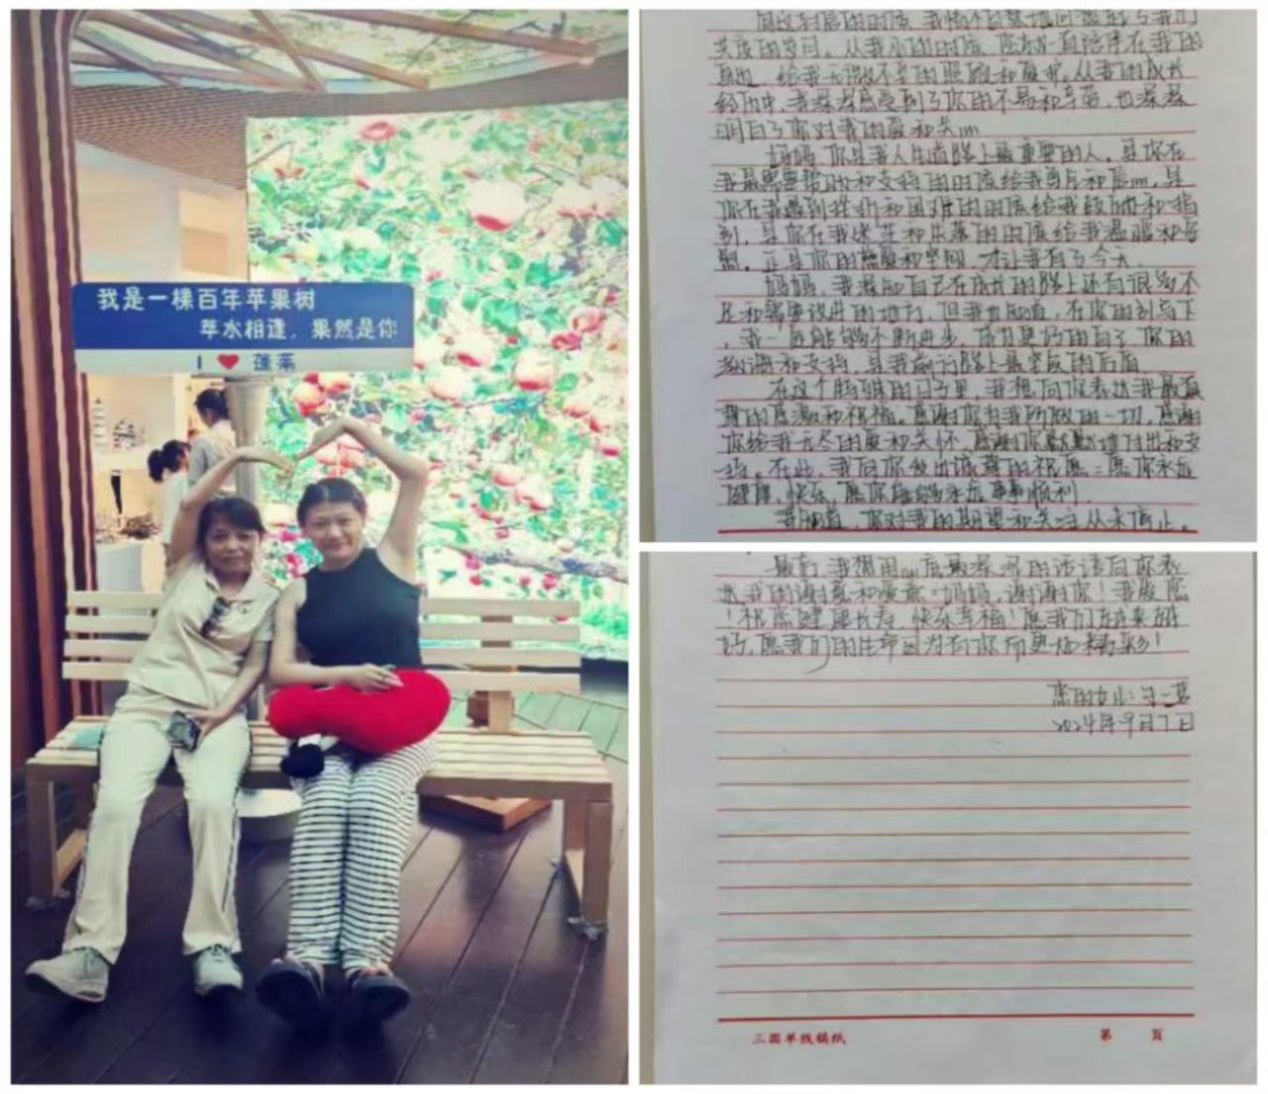 我是一棵百年苹果树
苹水相逢，果然是你
I ❤ 蓬莱
写这封信的时候，我情不自禁地回想起了我们
共度的岁月。从我小的时候，您就一直陪伴在我的
身边，给我无微不至的照顾和爱护。从我的成长
经历中，我深深感受到了你的不易和辛苦，也深深
明白了你对我的爱和关心
妈妈，你是我人生道路上最重要的人。是你在
我最需要帮助和支持的时候给我勇气和信心，是
你在我遇到挫折和困难的时候给我鼓励和指
引，是你在我迷茫和失落的时候给我温暖和
正是你的慈爱和坚韧，才让我有了今天。
妈妈，我深知自己在成长的路上还有很多不
足和需要改进的地方，但我也知道，在你的引导下
，我一定能够不断进步，成为更好的自己。你的
鼓励和支持，是我前行路上最坚实的后盾
在这个特殊的日子里，我想向你表达我最真
挚的感激和祝福。感谢你为我所做的一切，感谢
你给我无尽的爱和关怀，感谢你默默地付出和支
持。在此，我向你致以诚挚的祝愿：愿你永远
健康，快乐，愿你能够永远事事顺利。
我知道，你对我的期望和关注从未停止。
最后，我想用心底最深沉的话语向你表
达我的谢意和爱意：妈妈，谢谢你！我爱您
！祝您健康长寿，快乐幸福！愿我们的未来越
好，愿我们的生命因为有你而更加精彩！
您的女儿：
2024年9月7日
三圆单线稿纸
第 页